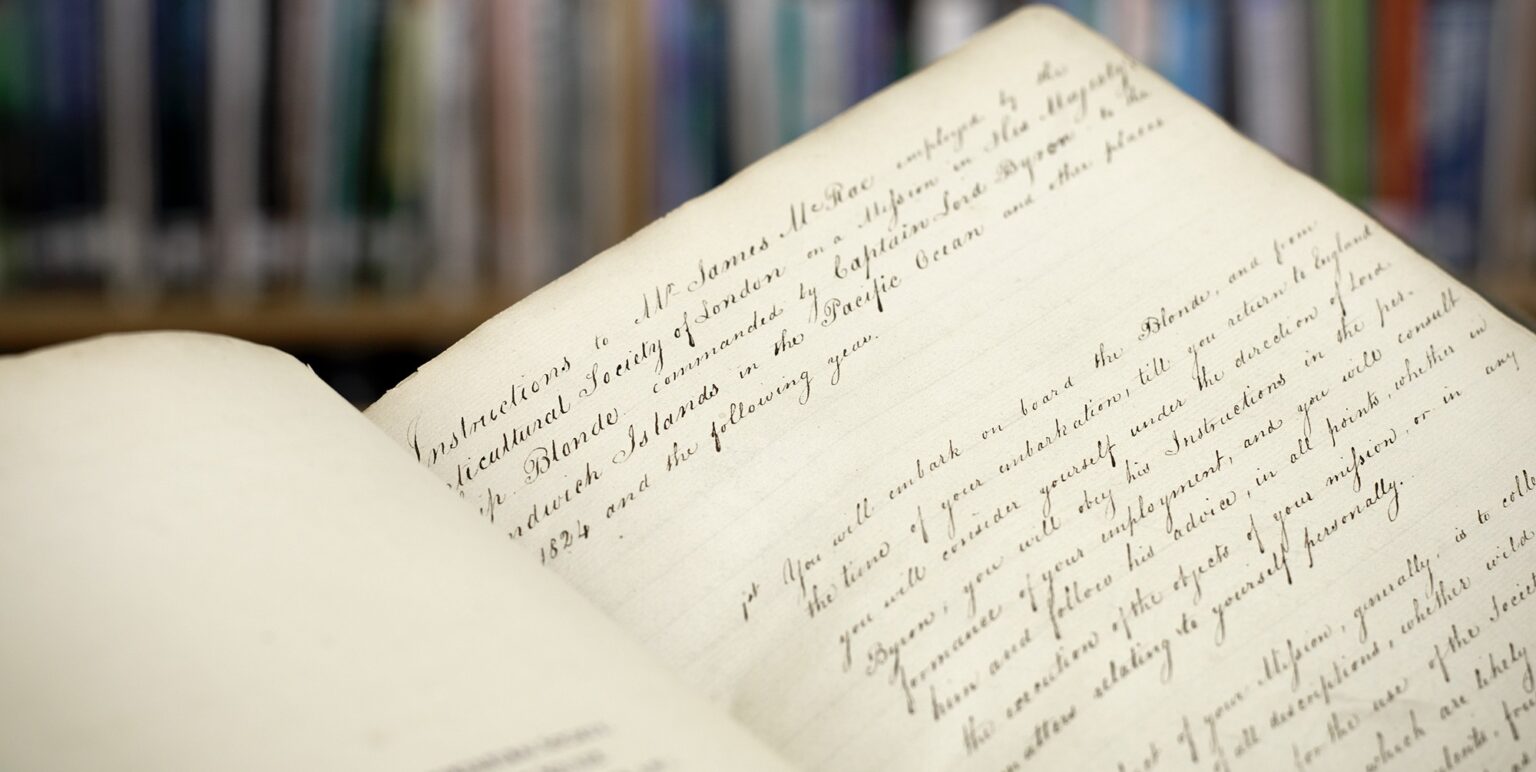 Instructions to Mr. James McRae employed by the
ticultural Society of London on a Mission in His Majesty's
ip Blonde commanded by Captain Lord Byron to the
ndwich Islands in the Pacific Ocean and other places
1824 and the following year.
1st You will embark on board the Blonde, and from
the time of your embarkation, till you return to England
you will consider yourself under the direction of Lord
Byron; you will obey his Instructions in the per-
formance of your employment, and you will consult
him and follow his advice, in all points, whether in
the execution of the objects of your mission, or in any
matters relating to yourself personally.
of your Mission, generally, is to colle
all descriptions, whether wild
for the use of the Societ
which are likely